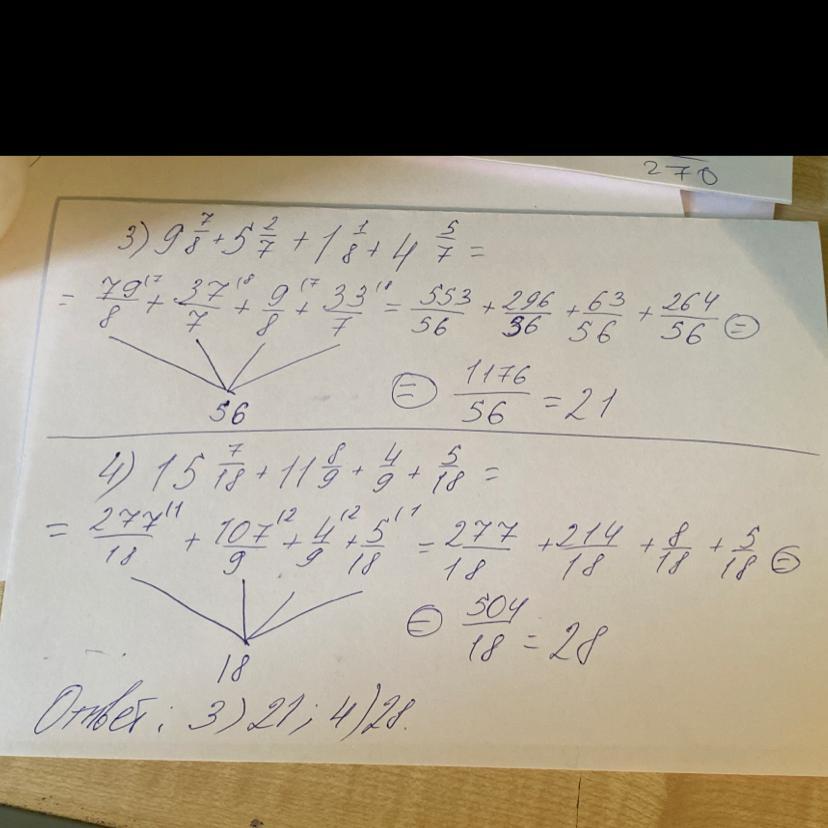 270
3) 9 7/8 + 5 2/7 + 1 1/8 + 4 5/7 =
= 79/8 (7 + 37/7 (8 + 9/8 (7 + 33/7 (8 = 553/56 + 296/56 + 63/56 + 264/56 =
56
= 1176/56 = 21
4) 15 7/18 + 11 8/9 + 4/9 + 5/18 =
= 277/18 (1 + 107/9 (2 + 4/9 (2 + 5/18 (1 = 277/18 + 214/18 + 8/18 + 5/18 =
= 504/18 = 28
18
Ответ: 3) 21; 4) 28.